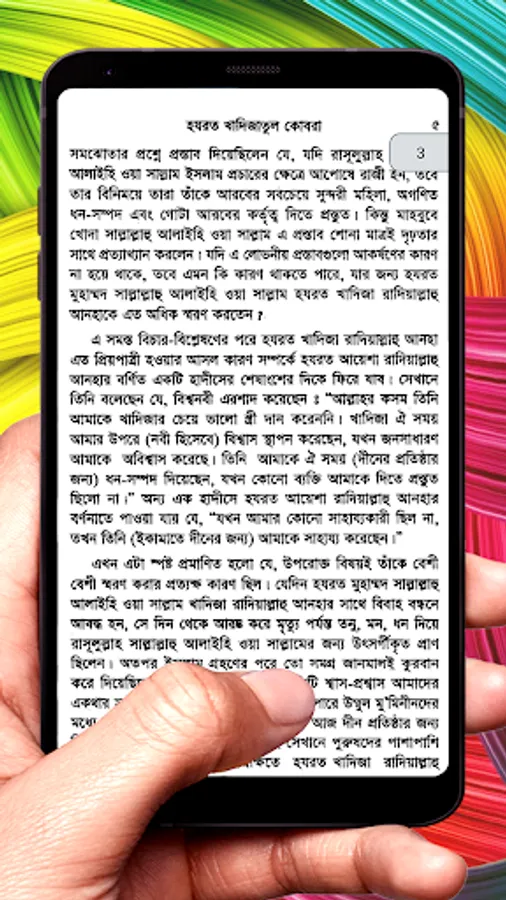 হযরত খাদিজাতুল কোবরা ৫
3
সমঝোতার প্রশ্নে প্রস্তাব দিয়েছিলেন যে, যদি রাসূলুল্লাহ
আলাইহি ওয়া সাল্লাম ইসলাম প্রচারের ক্ষেত্রে আপোষে রাজী হন, তবে
তার বিনিময়ে তারা তাঁকে আরবের সবচেয়ে সুন্দরী মহিলা, অগণিত
ধন-সম্পদ এবং গোটা আরবের কর্তৃত্ব দিতে প্রস্তুত। কিন্তু মাহবুবে
খোদা সাল্লাল্লাহু আলাইহি ওয়া সাল্লাম এ প্রস্তাব শোনা মাত্রই দৃঢ়তার
সাথে প্রত্যাখ্যান করলেন। যদি এ লোভনীয় প্রস্তাবগুলো আকর্ষণের কারণ
না হয়ে থাকে, তবে এমন কি কারণ থাকতে পারে, যার জন্য হযরত
মুহাম্মদ সাল্লাল্লাহু আলাইহি ওয়া সাল্লাম হযরত খাদিজা রাদিয়াল্লাহু
আনহাকে এত অধিক স্মরণ করতেন ?
এ সমস্ত বিচার-বিশ্লেষণের পরে হযরত খাদিজা রাদিয়াল্লাহু আনহা
এত প্রিয়পাত্রী হওয়ার আসল কারণ সম্পর্কে হযরত আয়েশা রাদিয়াল্লাহু
আনহার বর্ণিত একটি হাদীসের শেষাংশের দিকে ফিরে যাব। সেখানে
তিনি বলেছেন যে, বিশ্বনবী এরশাদ করেছেন ঃ “আল্লাহর কসম তিনি
আমাকে খাদিজার চেয়ে ভালো স্ত্রী দান করেননি। খাদিজা ঐ সময়
আমার উপরে (নবী হিসেবে) বিশ্বাস স্থাপন করেছেন, যখন জনসাধারণ
আমাকে অবিশ্বাস করেছে। তিনি আমাকে ঐ সময় (দীনের প্রতিষ্ঠার
জন্য) ধন-সম্পদ দিয়েছেন, যখন কোনো ব্যক্তি আমাকে দিতে প্রস্তুত
ছিলো না।” অন্য এক হাদীসে হযরত আয়েশা রাদিয়াল্লাহু আনহার
বর্ণনাতে পাওয়া যায় যে, “যখন আমার কোনো সাহায্যকারী ছিল না,
তখন তিনি (ইকামাতে দীনের জন্য) আমাকে সাহায্য করেছেন।”
এখন এটা স্পষ্ট প্রমাণিত হলো যে, উপরোক্ত বিষয়ই তাঁকে বেশী
বেশী স্মরণ করার প্রত্যক্ষ কারণ ছিল। যেদিন হযরত মুহাম্মদ সাল্লাল্লাহু
আলাইহি ওয়া সাল্লাম খাদিজা রাদিয়াল্লাহু আনহার সাথে বিবাহ বন্ধনে
আবদ্ধ হন, সে দিন থেকে আরম্ভ করে মৃত্যু পর্যন্ত তনু, মন, ধন দিয়ে
রাসূলুল্লাহ সাল্লাল্লাহু আলাইহি ওয়া সাল্লামের জন্য উৎসর্গীকৃত প্রাণ
ছিলেন। অতপর ইসলাম গ্রহণের পরে তো সমগ্র জানমালই কুরবান
করে শ্বাস-প্রশ্বাস আমাদের
একথার উম্মুল মু'মিনীনদের
মধ্যে আজ দীন প্রতিষ্ঠার জন্য
সেখানে পুরুষদের পাশাপাশি
হযরত খাদিজা রাদিয়াল্লাহু